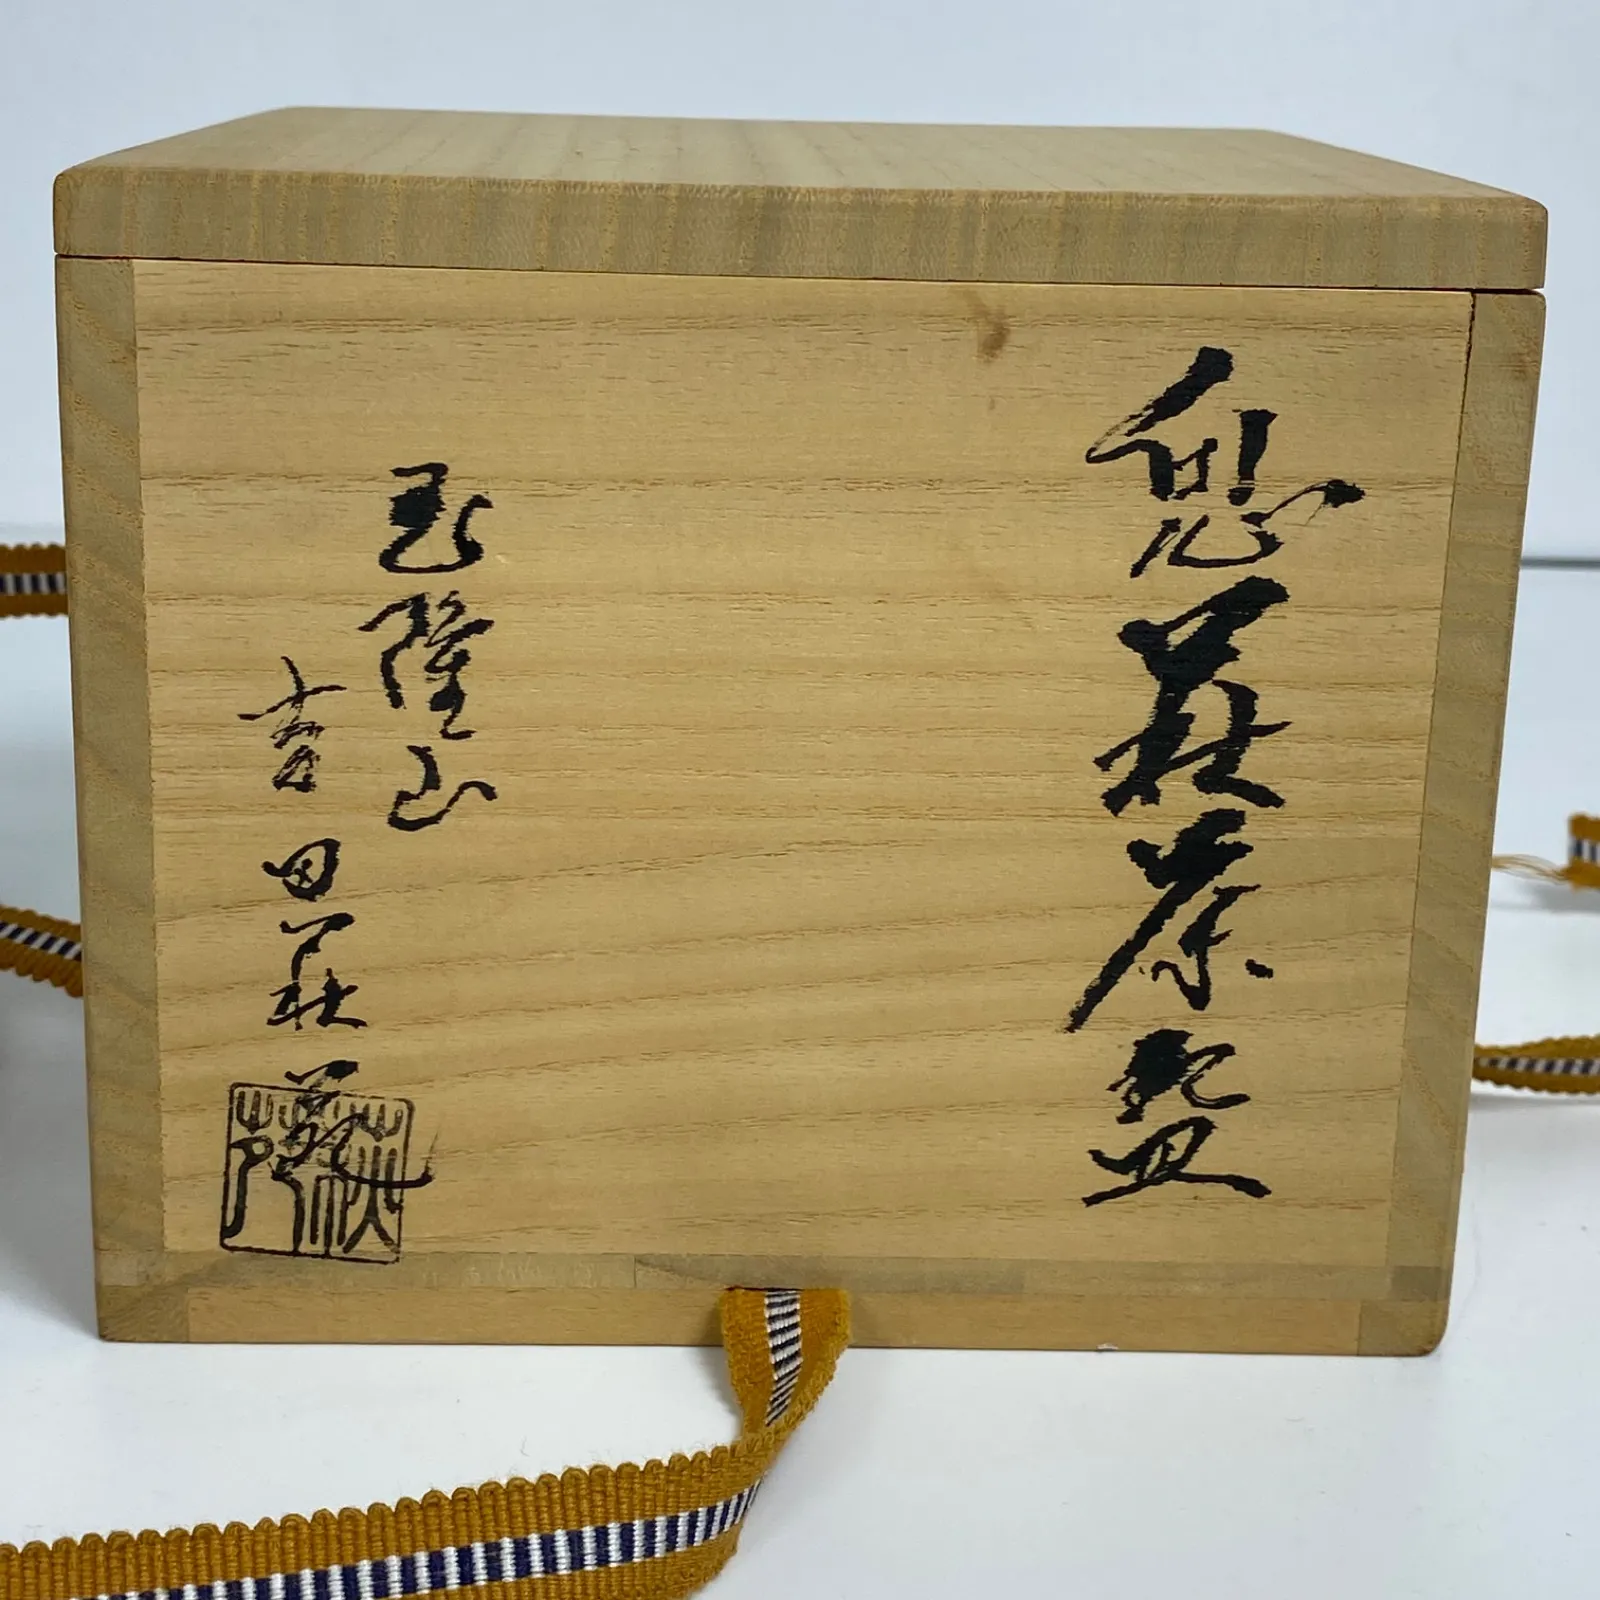 鬼萩茶盌
玉隆山
吉田萩苑
萩苑